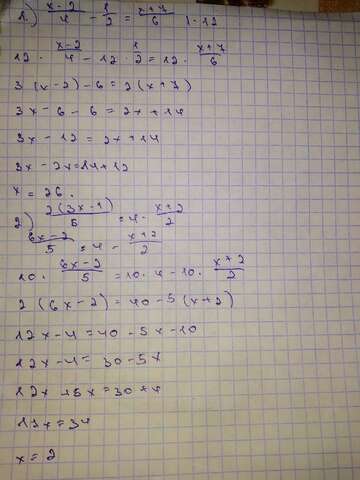 1.) x-2/4 - 1/2 = x+7/6 | · 12
12 · x-2/4 - 12 · 1/2 = 12 · x+7/6
3(x-2)-6=2(x+7)
3x-6-6=2x+14
3x-12=2x+14
3x-2x=14+12
x=26.
2) 2(3x-1)/5 =4- x+2/2
6x-2/5 =4- x+2/2
10 · 6x-2/5 =10·4-10· x+2/2
2(6x-2)=40-5(x+2)
12x-4=40-5x-10
12x-4=30-5x
12x+5x=30+4
17x=34
x=2